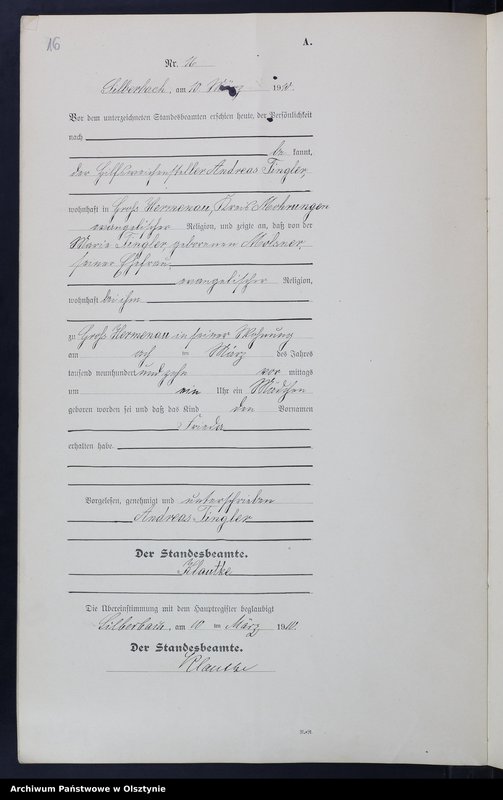 16
A.
Nr. 16
Silberbach, am 10 März 1910.
Vor dem unterzeichneten Standesbeamten erschien heute, der Persönlichkeit
nach
be kannt,
der Hilfsweichensteller Andreas Tingler,
wohnhaft in Groß Hermenau, Kreis Mohrungen
evangelischer Religion, und zeigte an, daß von der
Maria Tingler, geborenen Molsner,
seiner Ehefrau,
evangelischer Religion,
wohnhaft bei ihm
zu Groß Hermenau in seiner Wohnung
am März des Jahres
tausend neunhundert und zehn vor mittags
um ein Uhr ein Mädchen
geboren worden sei und daß das Kind den Vornamen
Frieda
erhalten habe.
Vorgelesen, genehmigt und unterschrieben
Andreas Tingler
Der Standesbeamte.
Klautke
Die Übereinstimmung mit dem Hauptregister beglaubigt
Silberbach, am 10 ten März 1910.
Der Standesbeamte.
Klautke
Archiwum Państwowe w Olsztynie